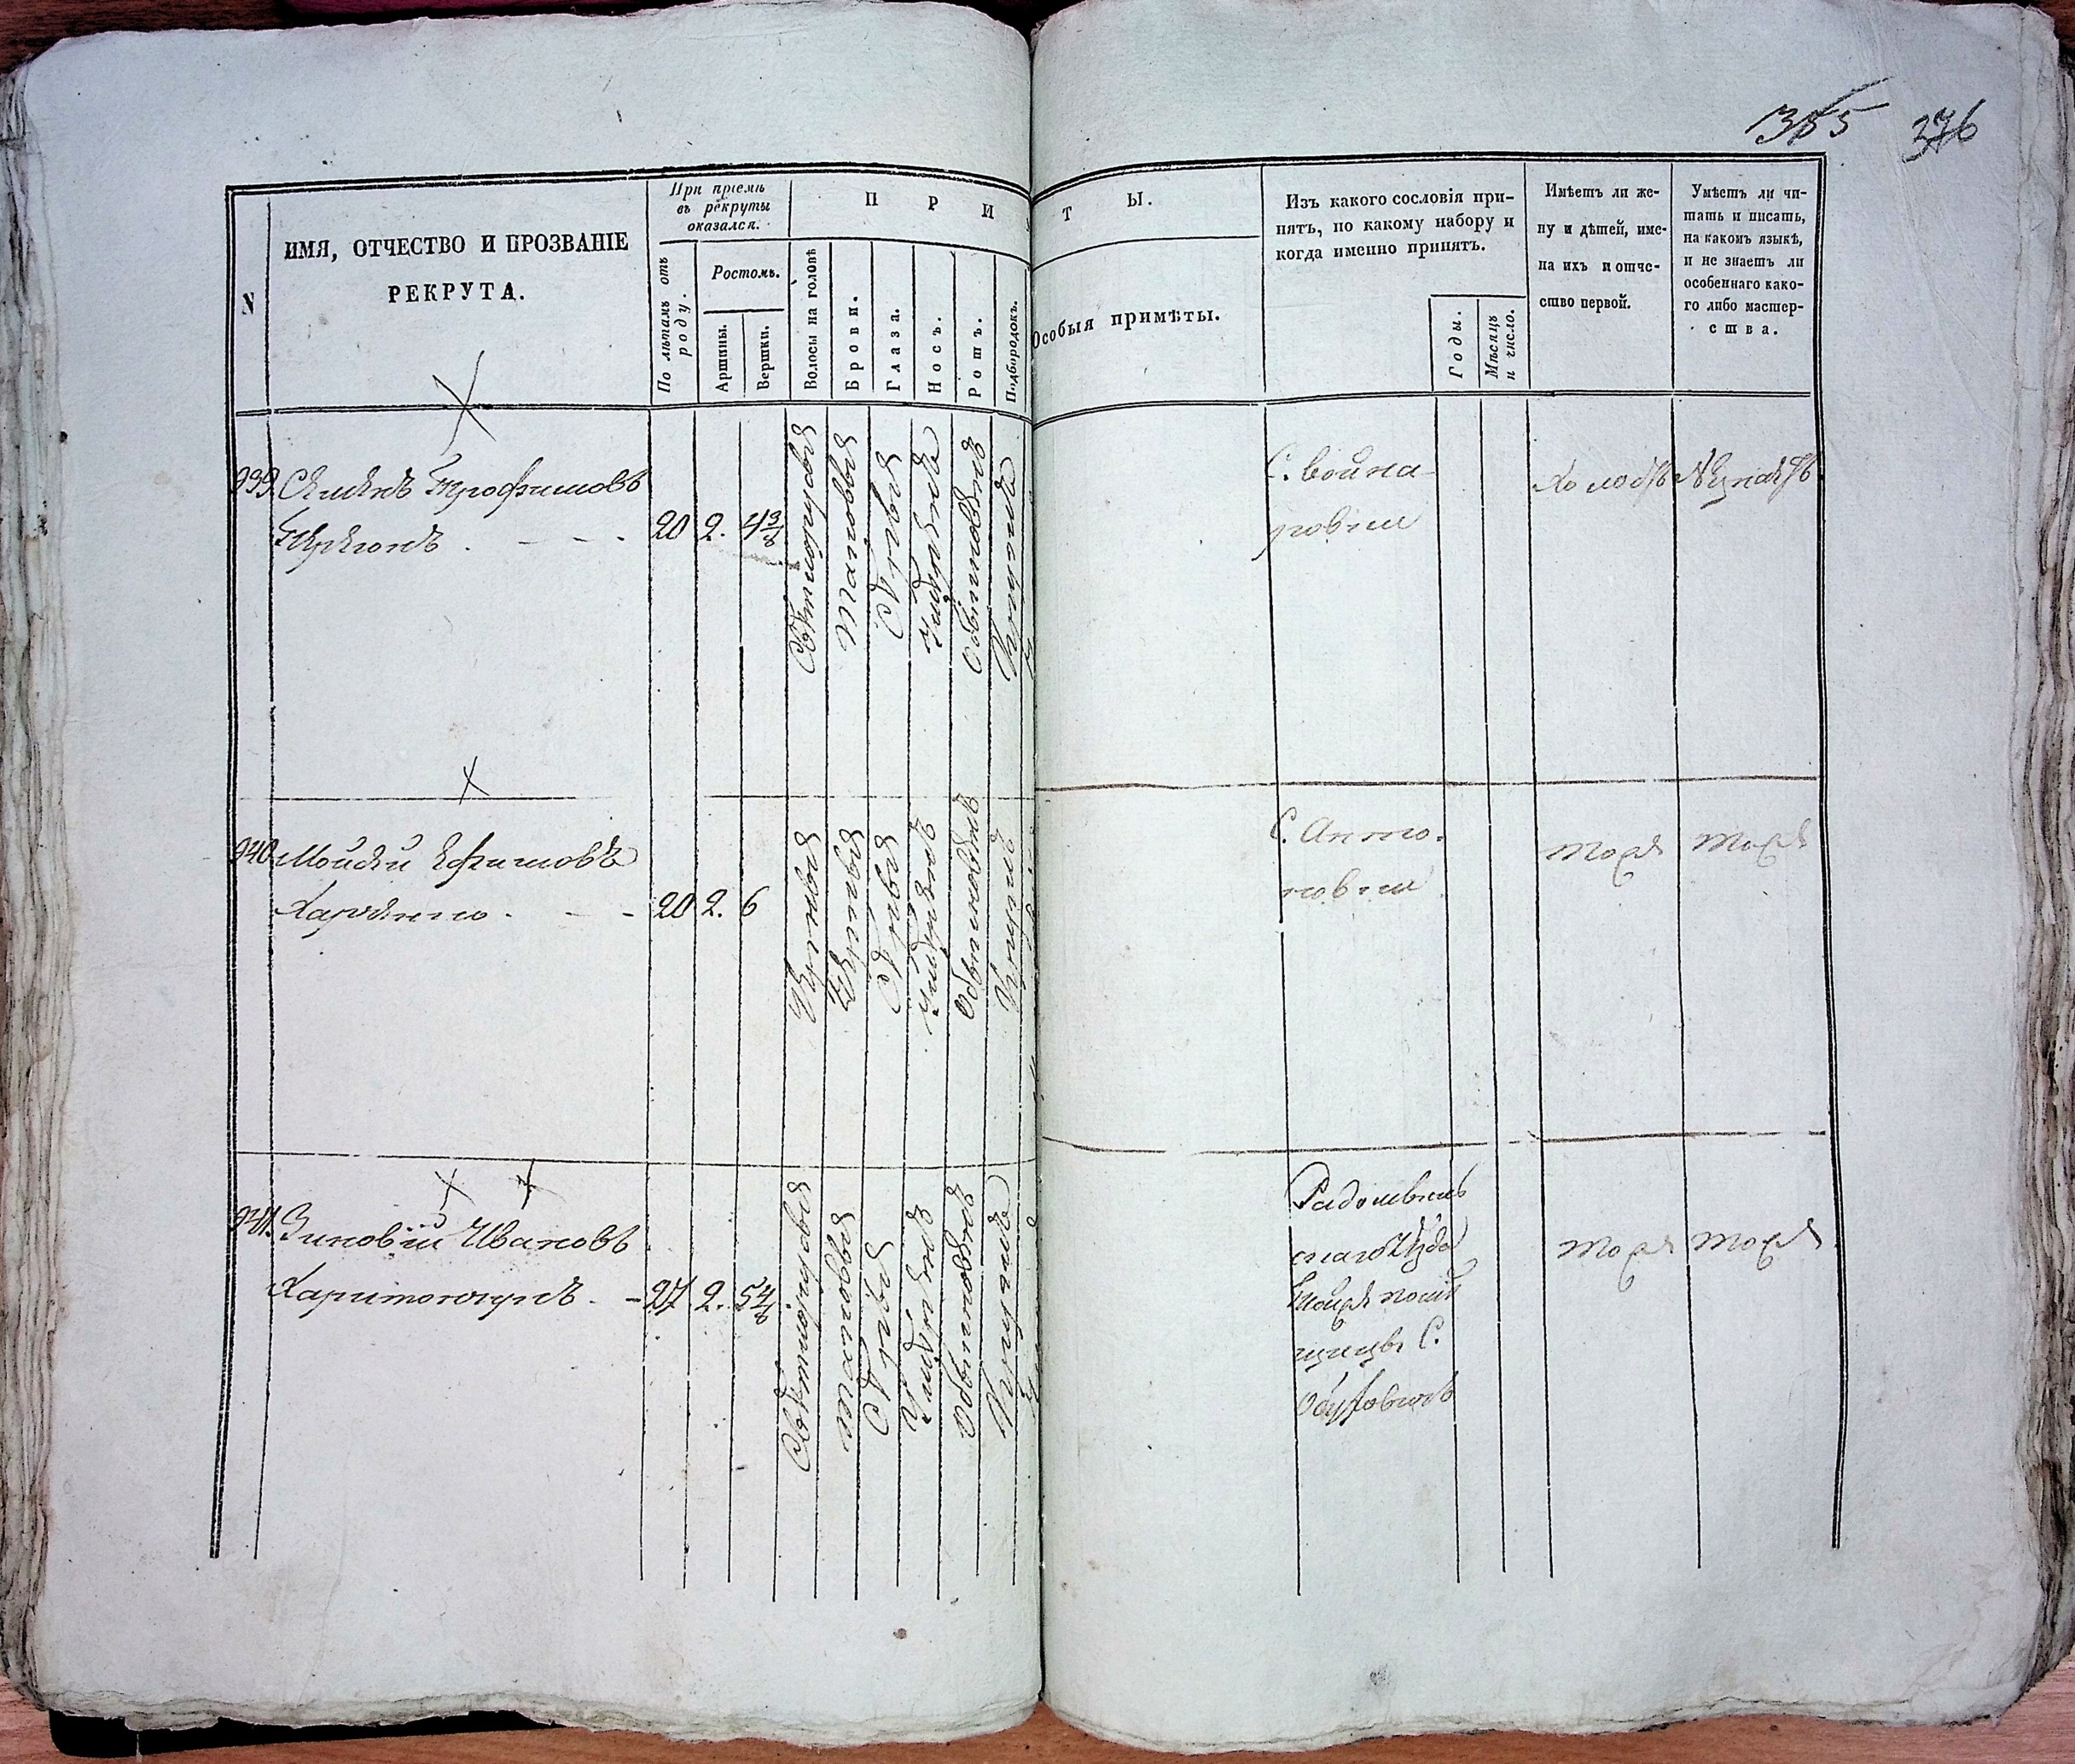 385 376
N
ИМЯ, ОТЧЕСТВО И ПРОЗВАНІЕ
РЕКРУТА.
При пріемѣ
въ рекруты
оказался.
По лѣтамъ отъ
роду.
Ростомъ.
Аршины.
Вершки.
П Р И
Волосы на головѣ
Брови.
Глаза.
Носъ.
Ротъ.
Подбородокъ.
Т Ы.
Особыя примѣты.
Изъ какого сословія при-
нятъ, по какому набору и
когда именно принятъ.
Годы.
Мѣсяцъ
и число.
Имѣетъ ли же-
ну и дѣтей, име-
на ихъ и отче-
ство первой.
Умѣетъ ли чи-
тать и писать,
на какомъ языкѣ,
и не знаетъ ли
особеннаго како-
го либо мастер-
ства.
939. Семенъ Трофимовъ
20 2. 4 3/8
Светлорусые
таковыя
Серые
умеренъ
обыкновенъ
круглъ
С. Война-
ровки
Холостъ
Неумеетъ
940. Мойсей Ефимовъ
Харченко
20 2. 6
Черные
Черные
Серые
умеренъ
обыкновенъ
круглъ
С. Анто-
новки
тоже
тоже
941. Зиновій Ивановъ
Харитончукъ
27 2. 5 4/8
Светлорусые
таковыя
Серые
умеренъ
обыкновенъ
круглъ
Радомысль
скаго уезда
помѣ
щицы С.
Обуховичъ
тоже
тоже